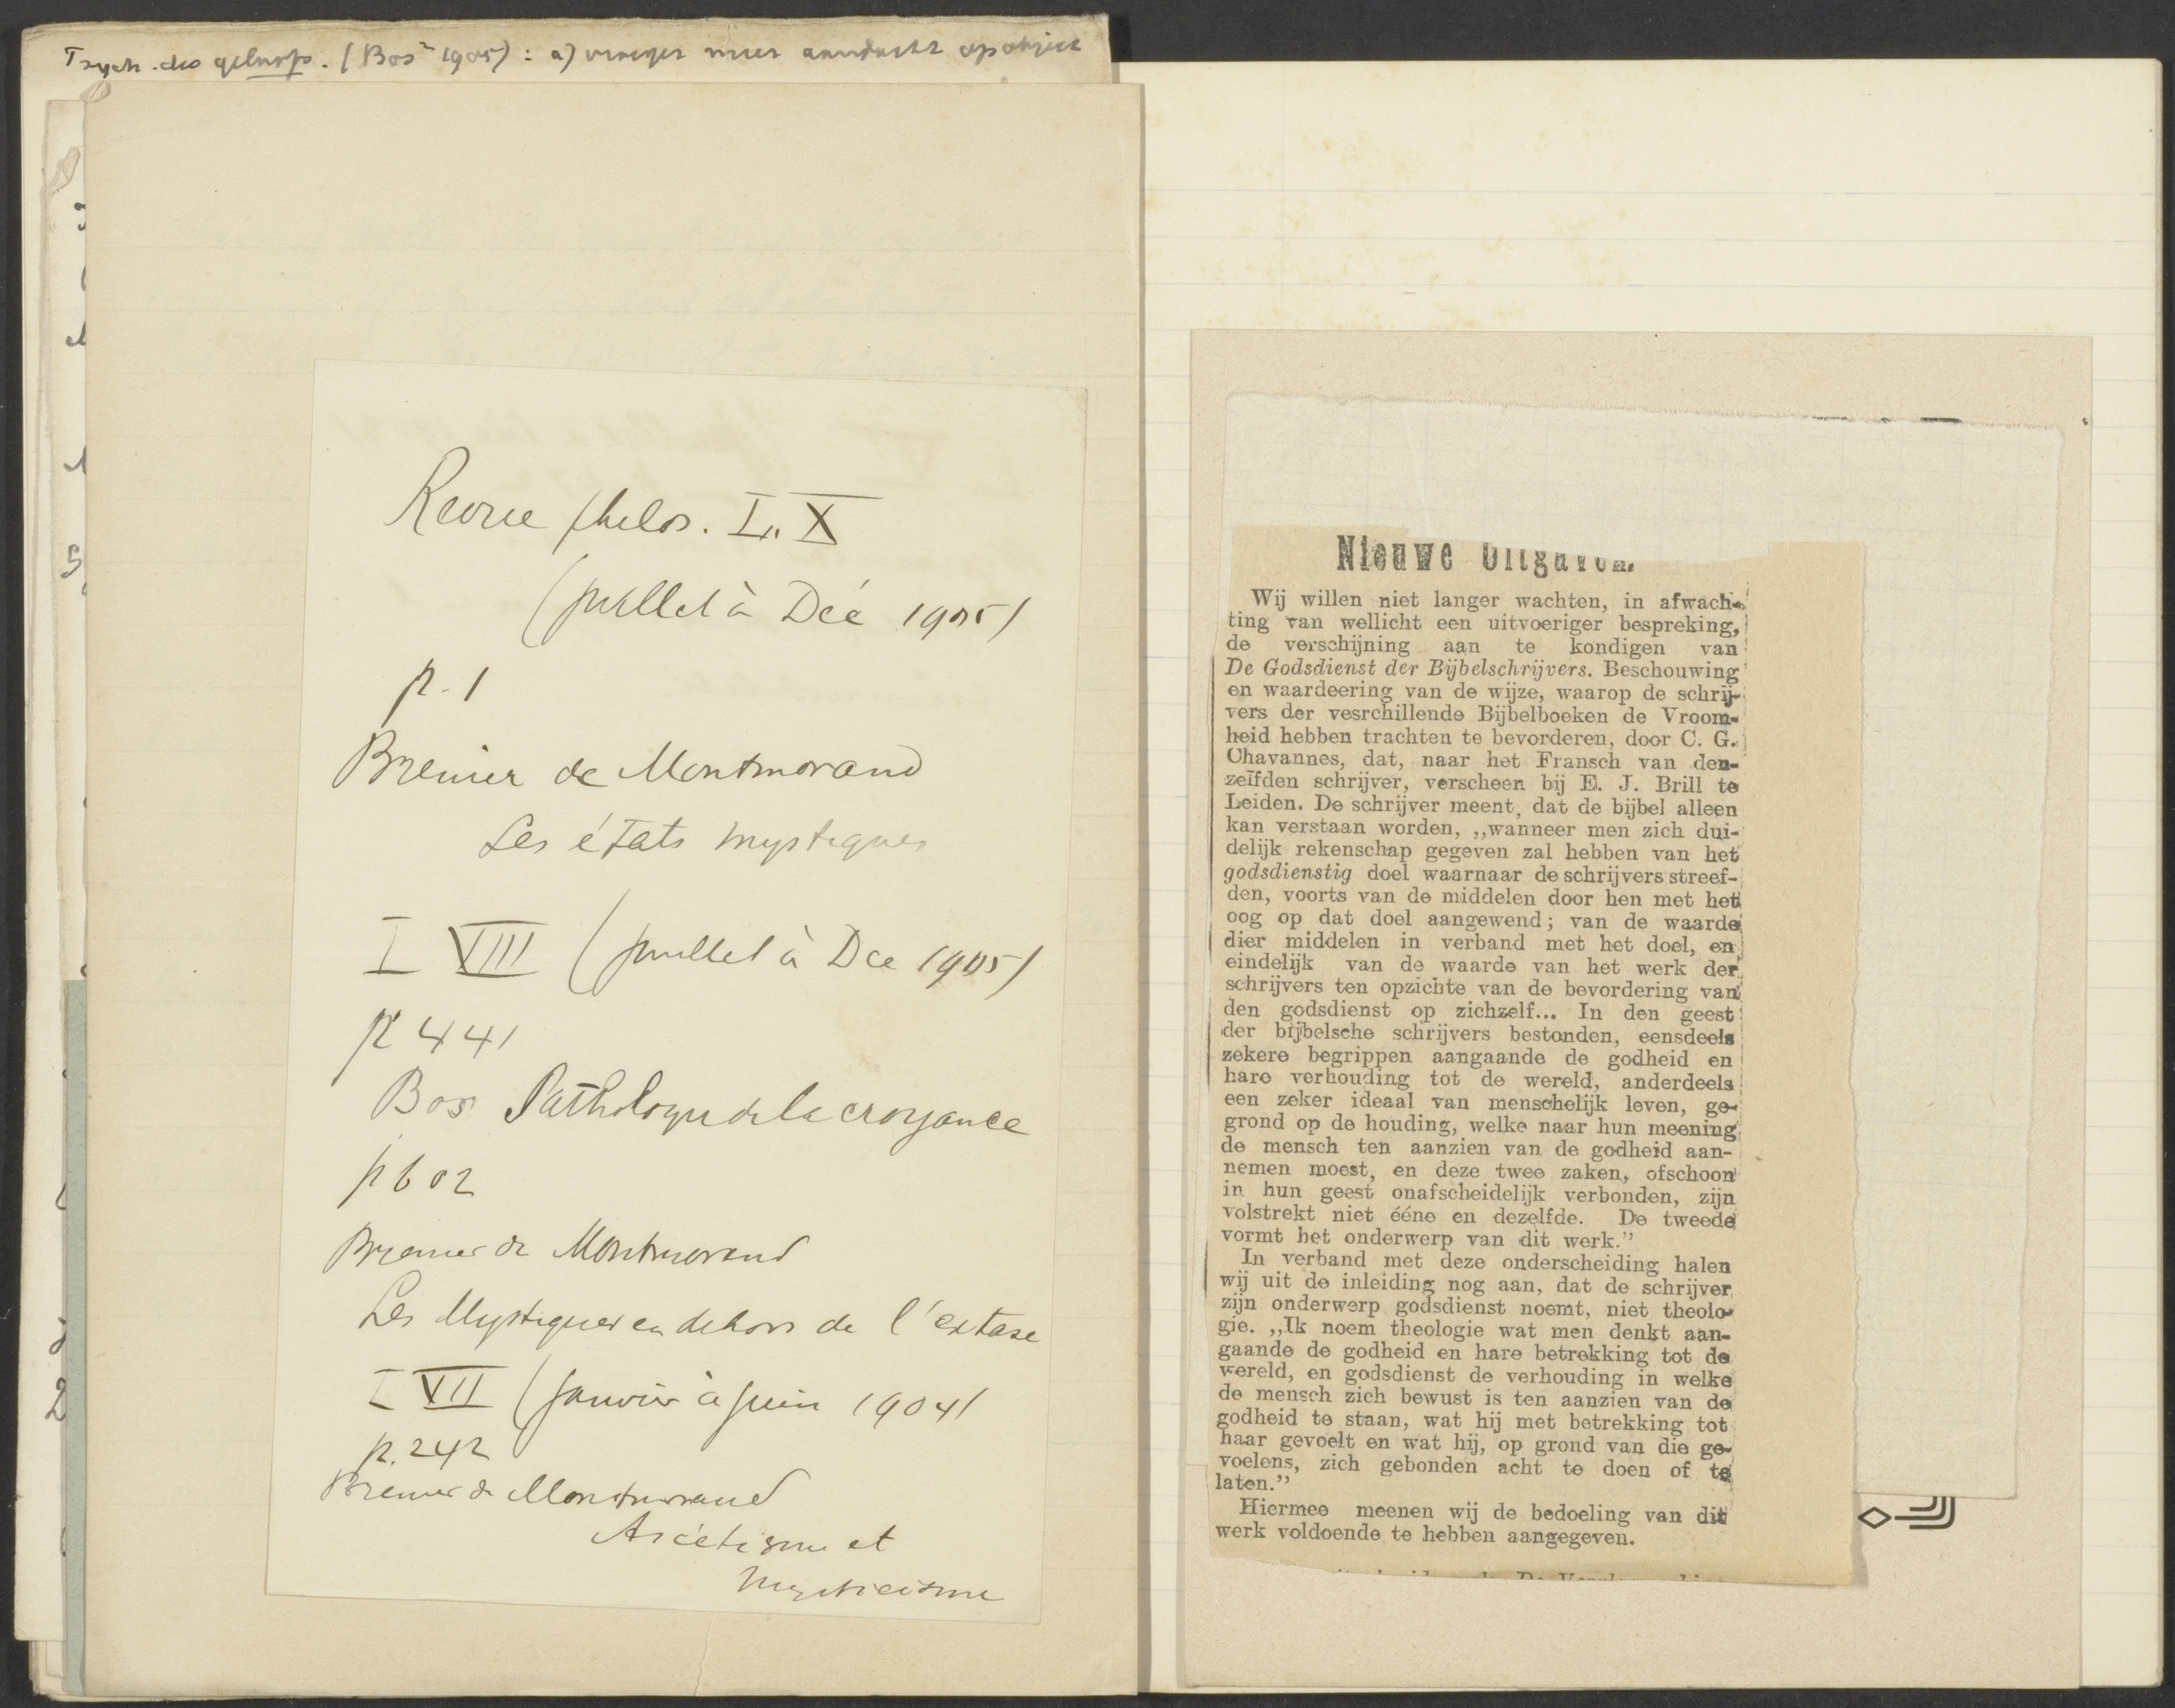 Psych. des geloofs. (Bos 1905): a) vroeger meer aandacht op object
Revue philos. L. X
(juillet à Déc 1905)
p. 1
Brenier de Montmorand
Les états mystiques
L VIII (juillet à Dec 1905)
p 441
Bos Pathologie de la croyance
p 602
Brenier de Montmorand
Les Mystiques en dehors de l'extase
L VII (janvier à juin 1904)
p. 242
Brenier de Montmorand
Ascétisme et
Mysticisme
Nieuwe Uitgaven.
Wij willen niet langer wachten, in afwach-
ting van wellicht een uitvoeriger bespreking,
de verschijning aan te kondigen van
De Godsdienst der Bijbelschrijvers. Beschouwing
en waardeering van de wijze, waarop de schrij-
vers der vesrchillende Bijbelboeken de Vroom-
heid hebben trachten te bevorderen, door C. G.
Chavannes, dat, naar het Fransch van den-
zelfden schrijver, verscheen bij E. J. Brill te
Leiden. De schrijver meent, dat de bijbel alleen
kan verstaan worden, „wanneer men zich dui-
delijk rekenschap gegeven zal hebben van het
godsdienstig doel waarnaar de schrijvers streef-
den, voorts van de middelen door hen met het
oog op dat doel aangewend; van de waarde
dier middelen in verband met het doel, en
eindelijk van de waarde van het werk der
schrijvers ten opzichte van de bevordering van
den godsdienst op zichzelf... In den geest
der bijbelsche schrijvers bestonden, eensdeels
zekere begrippen aangaande de godheid en
hare verhouding tot de wereld, anderdeels
een zeker ideaal van menschelijk leven, ge-
grond op de houding, welke naar hun meening
de mensch ten aanzien van de godheid aan-
nemen moest, en deze twee zaken, ofschoon
in hun geest onafscheidelijk verbonden, zijn
volstrekt niet ééne en dezelfde. De tweede
vormt het onderwerp van dit werk.”
In verband met deze onderscheiding halen
wij uit de inleiding nog aan, dat de schrijver
zijn onderwerp godsdienst noemt, niet theolo-
gie. „Ik noem theologie wat men denkt aan-
gaande de godheid en hare betrekking tot de
wereld, en godsdienst de verhouding in welke
de mensch zich bewust is ten aanzien van de
godheid te staan, wat hij met betrekking tot
haar gevoelt en wat hij, op grond van die ge-
voelens, zich gebonden acht te doen of te
laten.”
Hiermee meenen wij de bedoeling van dit
werk voldoende te hebben aangegeven.